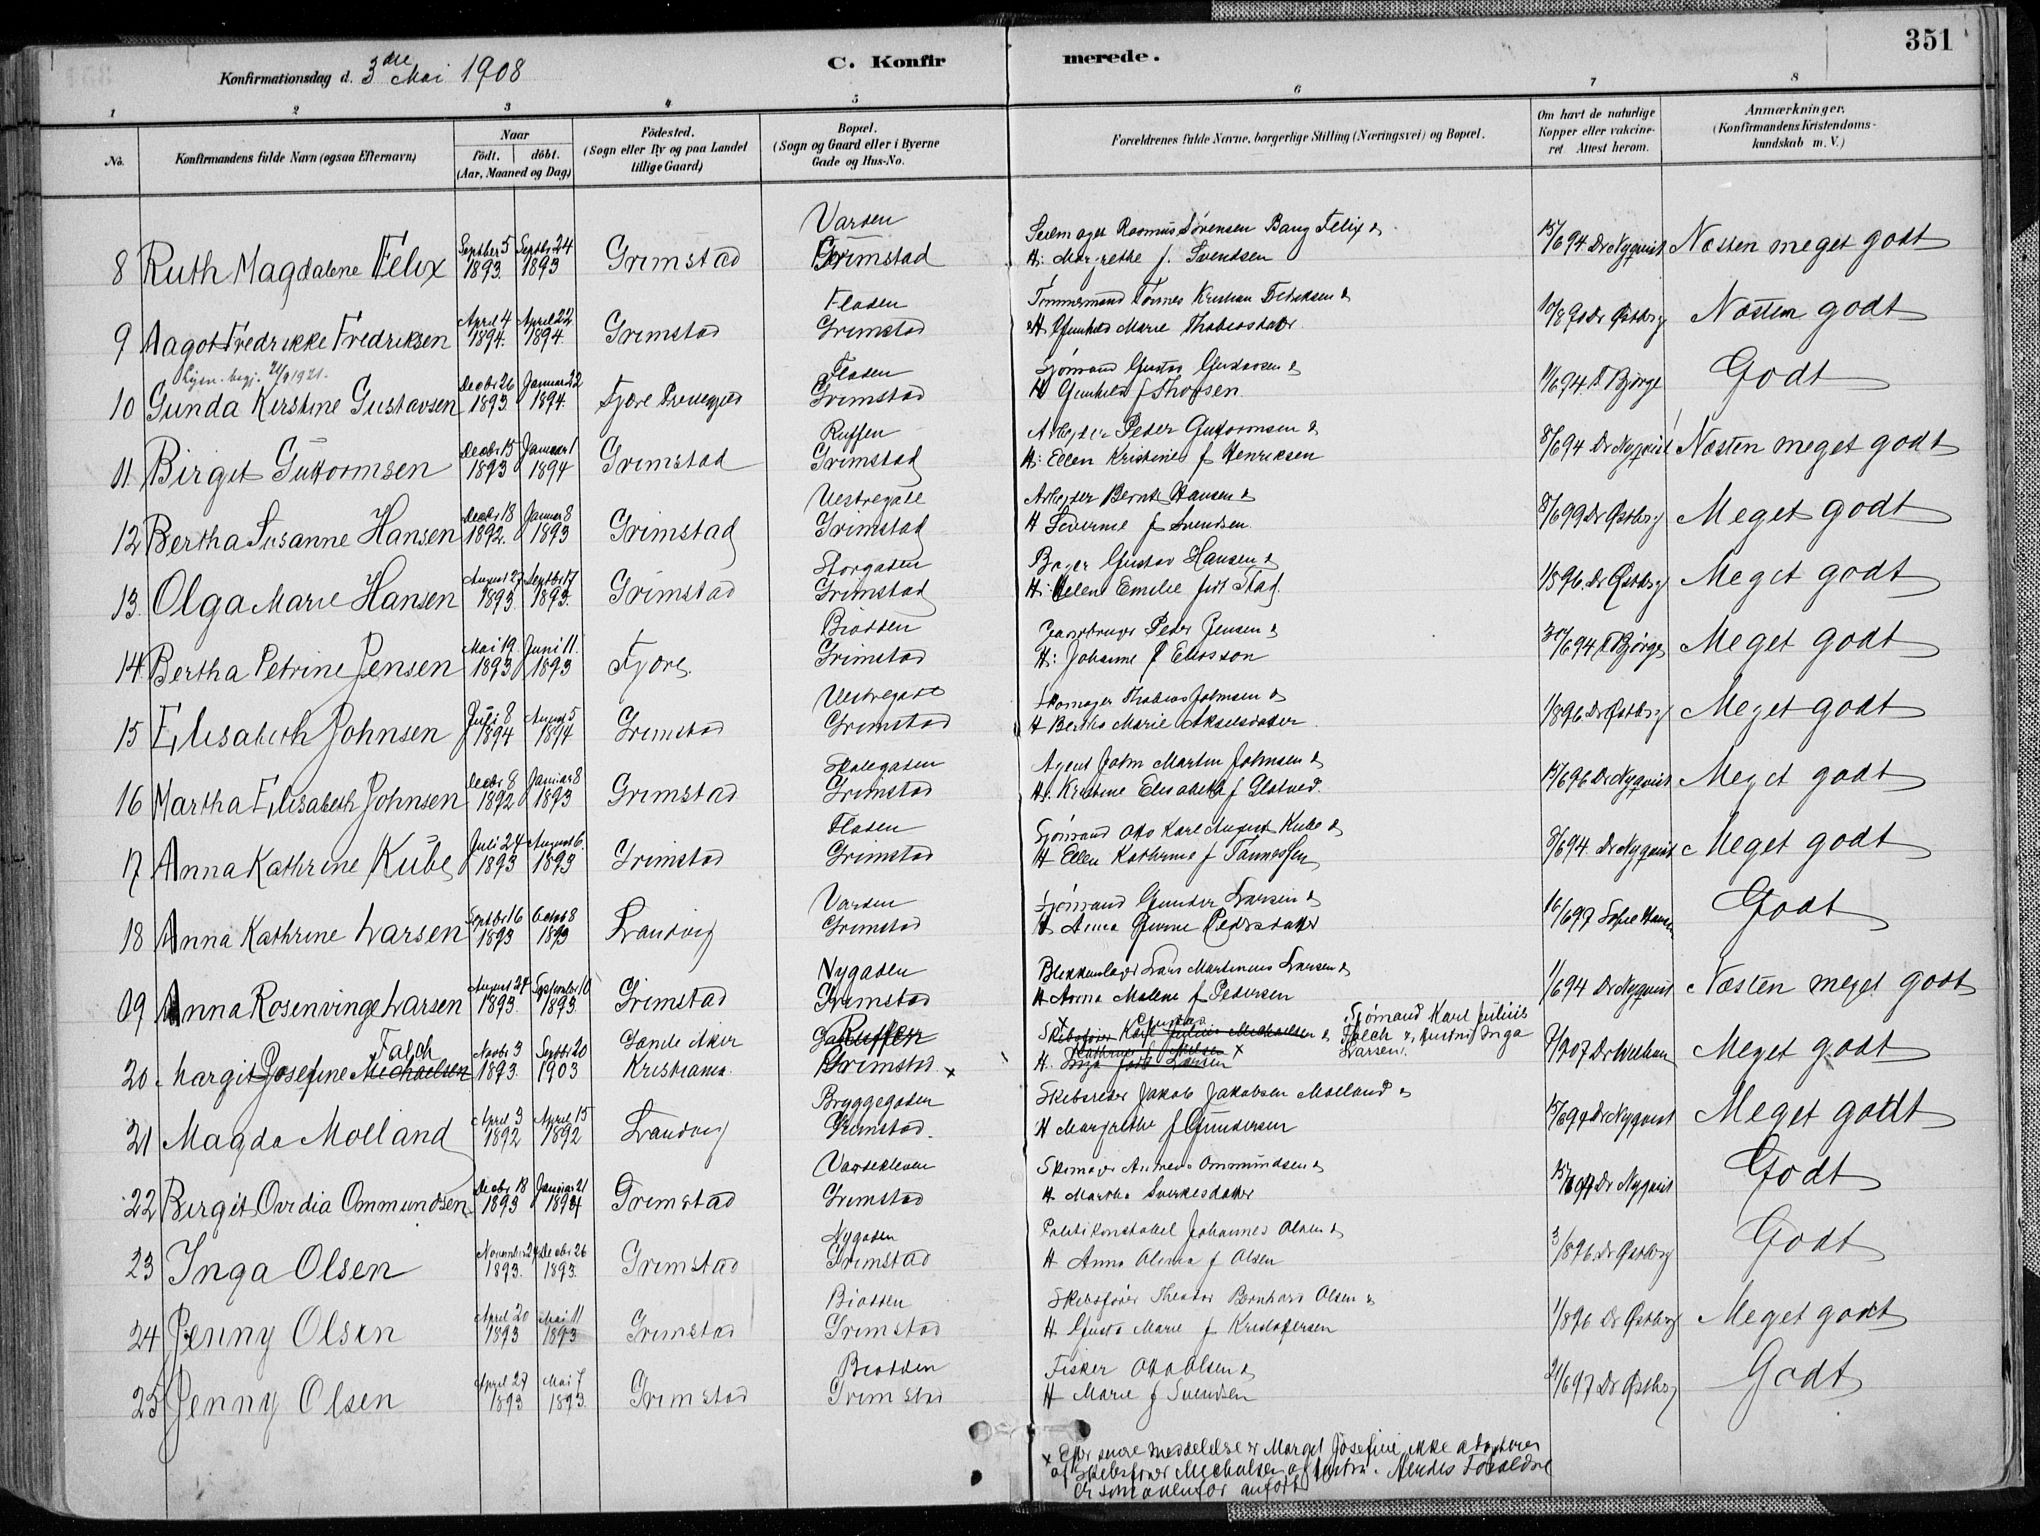 351
Konfirmationsdag d. 3die Mai 1908
C. Konfirmerede.
1 2 3 4 5 6 7 8
No.
Konfirmandens fulde Navn (ogsaa Efternavn)
Naar
födt. döbt.
(Aar, Maaned og Dag)
Födested.
(Sogn eller By og paa Landet tillige Gaard)
Bopæl.
(Sogn og Gaard eller i Byerne Gade og Hus-No.
Forældrenes fulde Navne, borgerlige Stilling (Næringsvei) og Bopæl.
Om havt de naturlige Kopper eller vakcineret Attest herom.
Anmærkninger.
(Konfirmandens Kristendomskundskab m. V.)
8 Ruth Magdalene Felix Septber 5 1893. Septbr 24 1893 Grimstad Varden Grimstad
Rasmus Sörensen Bang Felix &
H: Margrethe f. Svendsen
15/6 94 Dr Nyquist Næsten meget godt
9 Aagot Fredrikke Fredriksen April 4 1894. April 22 1894. Grimstad Fladen Grimstad
Tömmermand Tönnes Kristian Fredriksen &
H Gunhild Marie Thobiasdatter
Dr Østberg Næsten godt
Lysn. begj. 21/9 1921.
10 Gunda Kirstine Gustavsen Decbr 26 1893. Januar 22 1894. Fjære Præstegjeld Fladen Grimstad
Sjömand Gustav Gustavsen &
H Gunhild f Thorsen
11/6 94. F Bjørge Godt
11 Birget Guttormsen Decbr 15 1893 Januar 1 1894 Grimstad Ruffen Grimstad
Arbejder Peder Guttormsen &
H: Ellen Kristine f Henriksen
8/6 94 Dr Nyquist Næsten meget godt
12 Bertha Susanne Hansen Decbr 18 1892. Januar 8 1893 Grimstad Vestregate Grimstad
Arbejder Bernt Hansen &
H Severine f Svendsen
8/6 99 Dr Østberg Meget godt
13. Olga Marie Hansen August 27 1893. Septbr 17 1893. Grimstad Storgaden Grimstad
Bager Gustav Hansen &
H: Helene Emilie født Stag
1/8 96. Dr Østberg Meget godt
14 Bertha Petrine Jensen Mai 19. 1893 Juni 11. 1893 Fjære. Biodden Grimstad
Peder Jensen &
H: Johanne f Eliasson
30/6 94 F Bjørge Meget godt
15 Elisabeth Johnsen Juli 8 1894 August 5 1894 Grimstad Vestregate Grimstad
Skomager Thobias Johnsen &
H Bertha Marie Akselsdatter
1/8 96 Dr Østberg Meget godt
16 Martha Elisabeth Johnsen Decbr 8 1892 Januar 8 1893 Grimstad Skolegaden Grimstad
Agent John Martin Johnsen &
H. Kristine Elisabeth f Glatved.
15/6 96 Dr Nyquist Meget godt
17 Anna Kathrine Kube Juli 24 1893 August 6. 1893 Grimstad Fladen Grimstad
Sjömand Otto Karl August Kube &
H Ellen Kathrine f Tønnessen
8/6 94. Dr Nyquist Meget godt
18 Anna Kathrine Larsen Septbr 16 1893 Octob 8 1893 Landvig Varden Grimstad
Sjömand Gunder Larsen &
H Anna Gurine Pedersdatter
16/6 97 Godt
19 Anna Rosenvinge Larsen August 27 1893. September 10 1893. Grimstad Nygaden Grimstad
Blikkenslager Lars Martinius Larsen &
H Anna Malene f Pedersen
1/6 94 Dr Nyquist Næsten meget godt
20 Margit Josefine Michaelsen Falch Novbr 3 1893. Septbr 20 1903 Gamle Aker Kristiania. Ruffen Grimstad x
x Skibsfører Karl Julius Michaelsen &
H. Inga født Larsen
Sjömand Karl Julius Falch & Hustru Inga Larsen.
Meget godt
21 Magda Molland April 3 1892 April 15 1892 Landvig Bryggegaden Grimstad.
Skibsreder Jakob Jakobsen Molland &
H Margrethe f Gundersen
Dr Nyquist Meget godt
22 Birgit Ovidia Ommundsen Decbr 18 1893 Januar 21 1894 Grimstad Vardekleven Grimstad
Skomager Andreas Ommundsen &
H Martha Sverkesdatter
Dr Nyquist Godt
23 Inga Olsen November 24 1893. Decbr 26 1893. Grimstad Nygaden Grimstad
Politikonstabel Johannes Olsen &
H Anna Olina f Olsen
3/8 96. Dr Østberg Godt
24 Jenny Olsen April 20 1893 Mai 11 1893 Grimstad Biodden Grimstad
Skibsfører Theodor Bernhard Olsen &
H Gusta Marie f Kristofersen
1/8 96 Dr Østberg Meget godt
25 Jenny Olsen April 27 1893 Mai 7 1893. Grimstad Biodden Grimstad
Fisker Otto Olsen &
H Marie f Svendsen
21/6 97 Dr Østberg Godt
x Efter senere meddelelse er Margit Josefine ikke adopteret
af Skibsfører Michalsen og hustru. Hendes Forældre
er som ovenfor anført